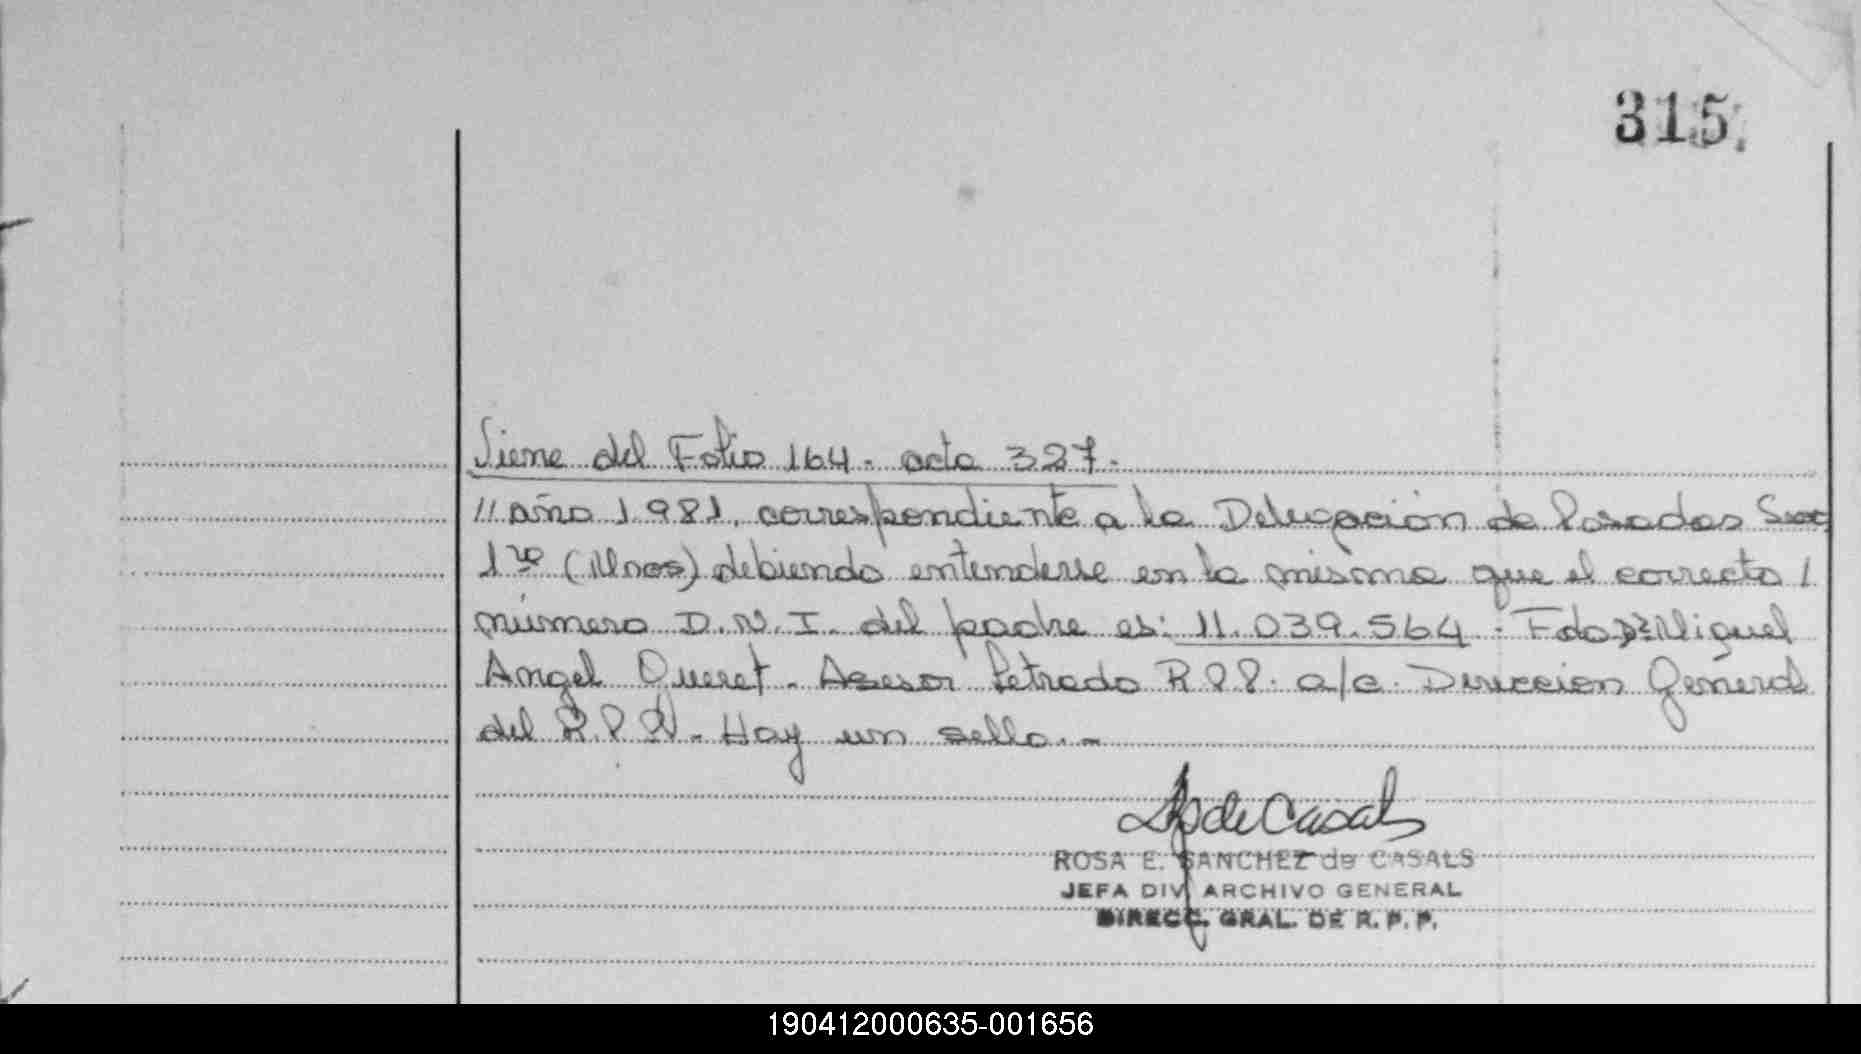 315
Viene del Folio 164. acta 327.
// año 1.981, correspondiente a la Delegación de Posadas Secc
1ra debiendo entenderse en la misma que el correcto /
número D.N.I. del padre es: 11.039.564. Fdo Dr Miguel
Angel Queret. Asesor Letrado R.P.P. a/c. Direccion General
del R.P.P. Hay un sello.-
de Casals
ROSA E. SANCHEZ de CASALS
JEFA DIV. ARCHIVO GENERAL
DIRECC. GRAL. DE R. P. P.
190412000635-001656